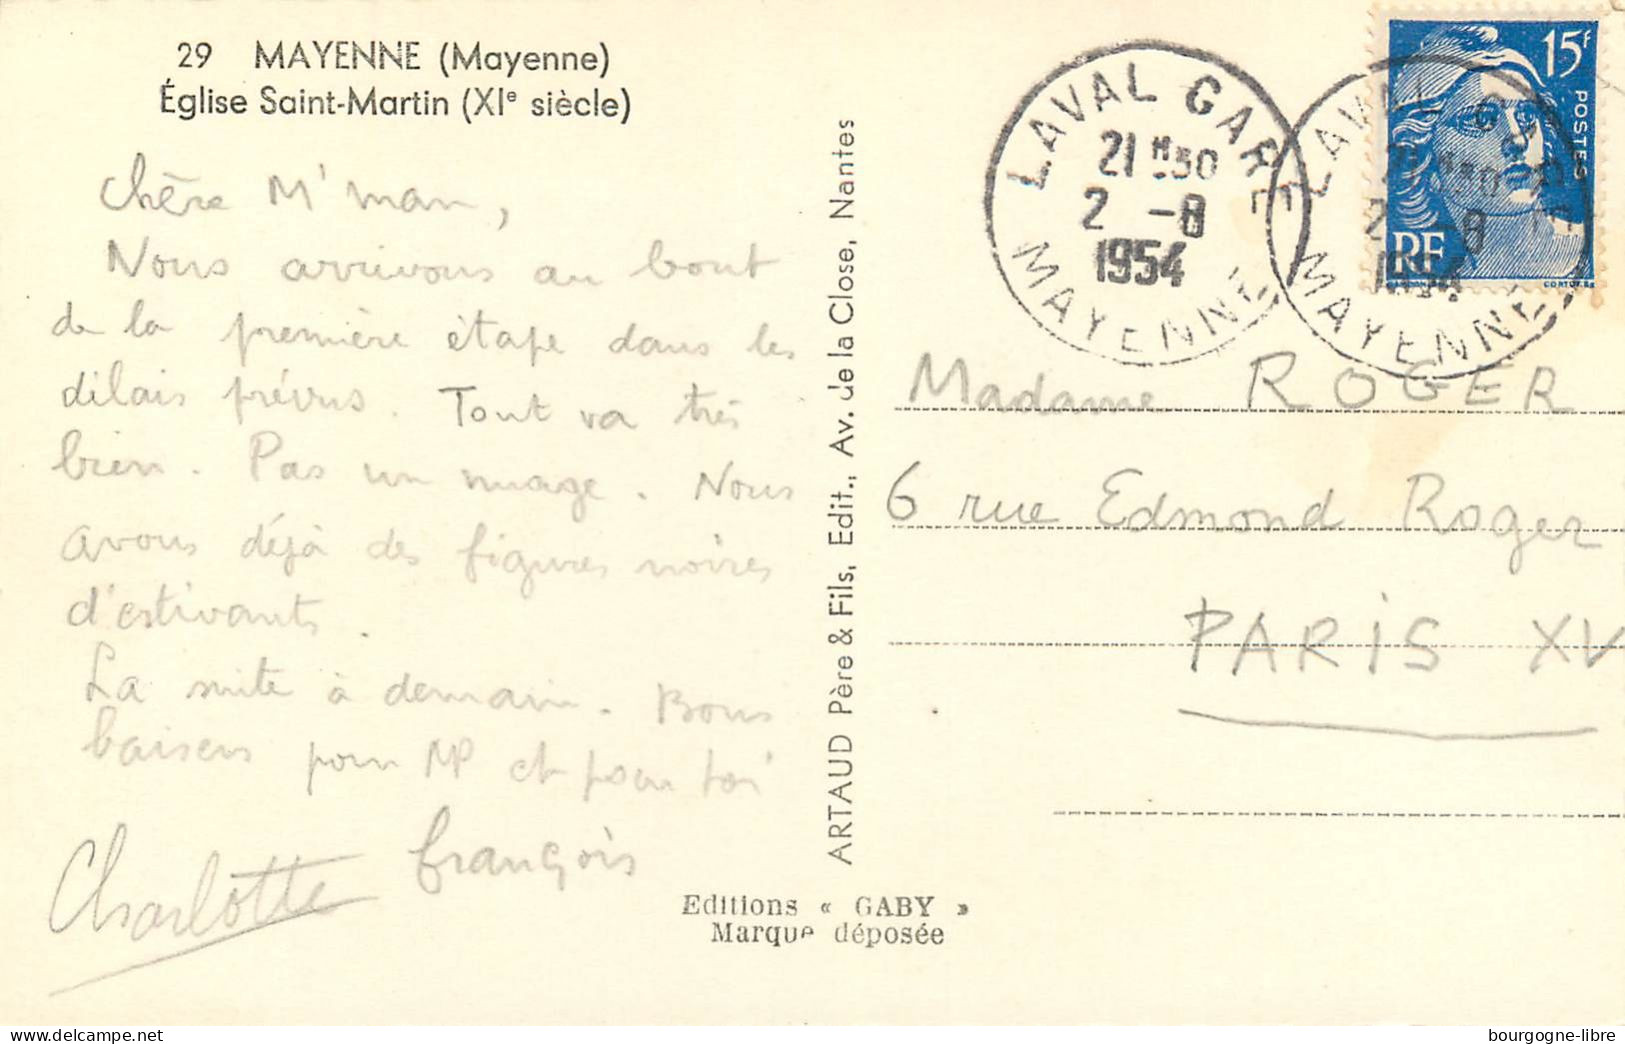 29 MAYENNE (Mayenne)
Église Saint-Martin (XIe siècle)
Chère M'man,
Nous arrivons au bout
de la première étape dans les
délais prévus. Tout va très
bien. Pas un nuage. Nous
avons déjà des figures noires
d'estivants.
La suite à demain. Bons
baisers pour MP et pour toi
Charlotte François
ARTAUD Père & Fils, Edit., Av. de la Close, Nantes
Editions « GABY »
Marque déposée
LAVAL GARE
21H30
2 -8
1954
MAYENNE
LAVAL GARE
21H30
2 -8
1954
MAYENNE
15F
POSTES
RF
Madame ROGER
6 rue Edmond Roger
PARIS XV
bourgogne-libre